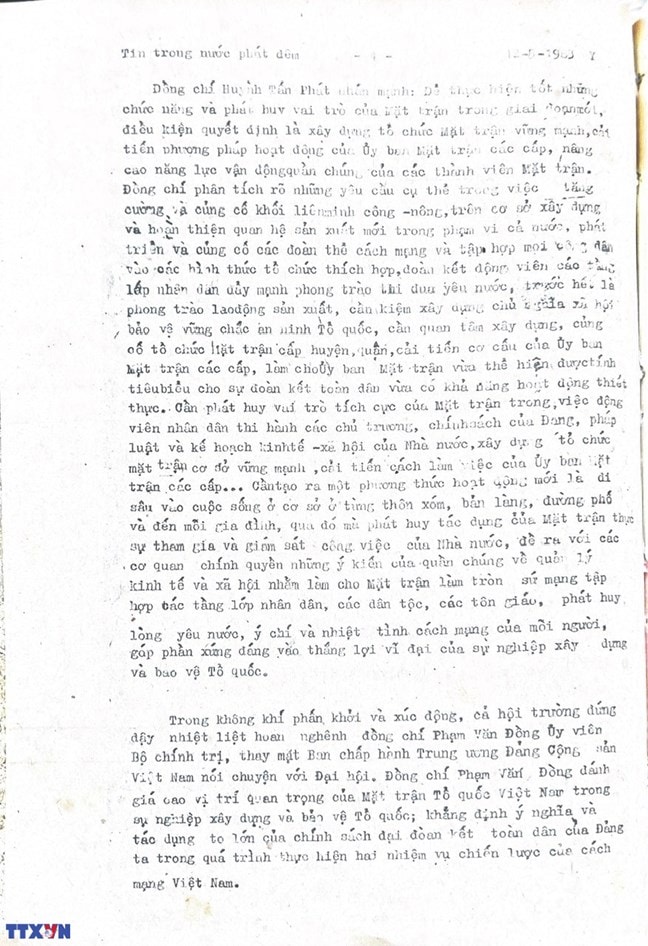 Tin trong nước phát đêm - 4 - 12-5-1983 Y
Đồng chí Huỳnh Tấn Phát nhấn mạnh: Để thực hiện tốt những
chức năng và phát huy vai trò của Mặt trận trong giai đoạnmới,
điều kiện quyết định là xây dựng tổ chức Mặt trận vững mạnh,cải
tiến phương pháp hoạt động của Ủy ban Mặt trận các cấp, nâng
cao năng lực vận độngquần chúng của các thành viên Mặt trận.
Đồng chí phân tích rõ những yêu cầu cụ thể trong việc tăng
cường và củng cố khối liênminh công -nông,trên cơ sở xây dựng
và hoàn thiện quan hệ sản xuất mới trong phạm vi cả nước, phát
triển và củng cố các đoàn thể cách mạng và tập hợp mọi công dân
vào các hình thức tổ chức thích hợp,đoàn kết động viên các tầng
lớp nhân dân đẩy mạnh phong trào thi đua yêu nước, trước hết là
phong trào laođộng sản xuất, cần kiệm xây dựng chủ nghĩa xã hội
bảo vệ vững chắc an ninh Tổ quốc, cần quan tâm xây dựng, củng
cố tổ chức Mặt trận cấp huyện,quận,cải tiến cơ cấu của Ủy ban
Mặt trận các cấp, làm choỦy ban Mặt trận vừa thể hiện đượctính
tiêubiểu cho sự đoàn kết toàn dân vừa có khả năng hoạt động thiết
thực. Cần phát huy vai trò tích cực của Mặt trận trong,việc động
viên nhân dân thi hành các chủ trương, chínhsách của Đảng, pháp
luật và kế hoạch kinhtế -xã hội của Nhà nước,xây dựng tổ chức
mặt trận cơ đở vững mạnh ,cải tiến cách làm việc của Ủy ban Mặt
trận các cấp... Cầntạo ra một phương thức hoạt động mới là đi
sâu vào cuộc sống ở cơ sở ở từng thôn xóm, bản làng, đường phố
và đến mỗi gia đình, qua đó mà phát huy tác dụng của Mặt trận thực
sự tham gia và giám sát công việc của Nhà nước, đề ra với các
cơ quan chính quyền những ý kiến của quần chúng về quản lý
kinh tế và xã hội nhằm làm cho Mặt trận làm tròn sứ mạng tập
hợp các tầng lớp nhân dân, các dân tộc, các tôn giáo, phát huy
lòng yêu nước, ý chí và nhiệt tình cách mạng của mỗi người,
góp phần xứng đáng vào thắng lợi vĩ đại của sự nghiệp xây dựng
và bảo vệ Tổ quốc.
Trong không khí phấn khởi và xúc động, cả hội trường đứng
dậy nhiệt liệt hoan nghênh đồng chí Phạm Văn Đồng Ủy viên
Bộ chính trị, thay mặt Ban chấp hành Trung ương Đảng Cộng sản
Việt Nam nói chuyện với Đại hội. Đồng chí Phạm Văn Đồng đánh
giá cao vị trí quan trọng của Mặt trận Tổ quốc Việt Nam trong
sự nghiệp xây dựng và bảo vệ Tổ quốc; khẳng định ý nghĩa và
tác dụng to lớn của chính sách đại đoàn kết toàn dân của Đảng
ta trong quá trình thực hiện hai nhiệm vụ chiến lược của cách
mạng Việt Nam.
TTXVN